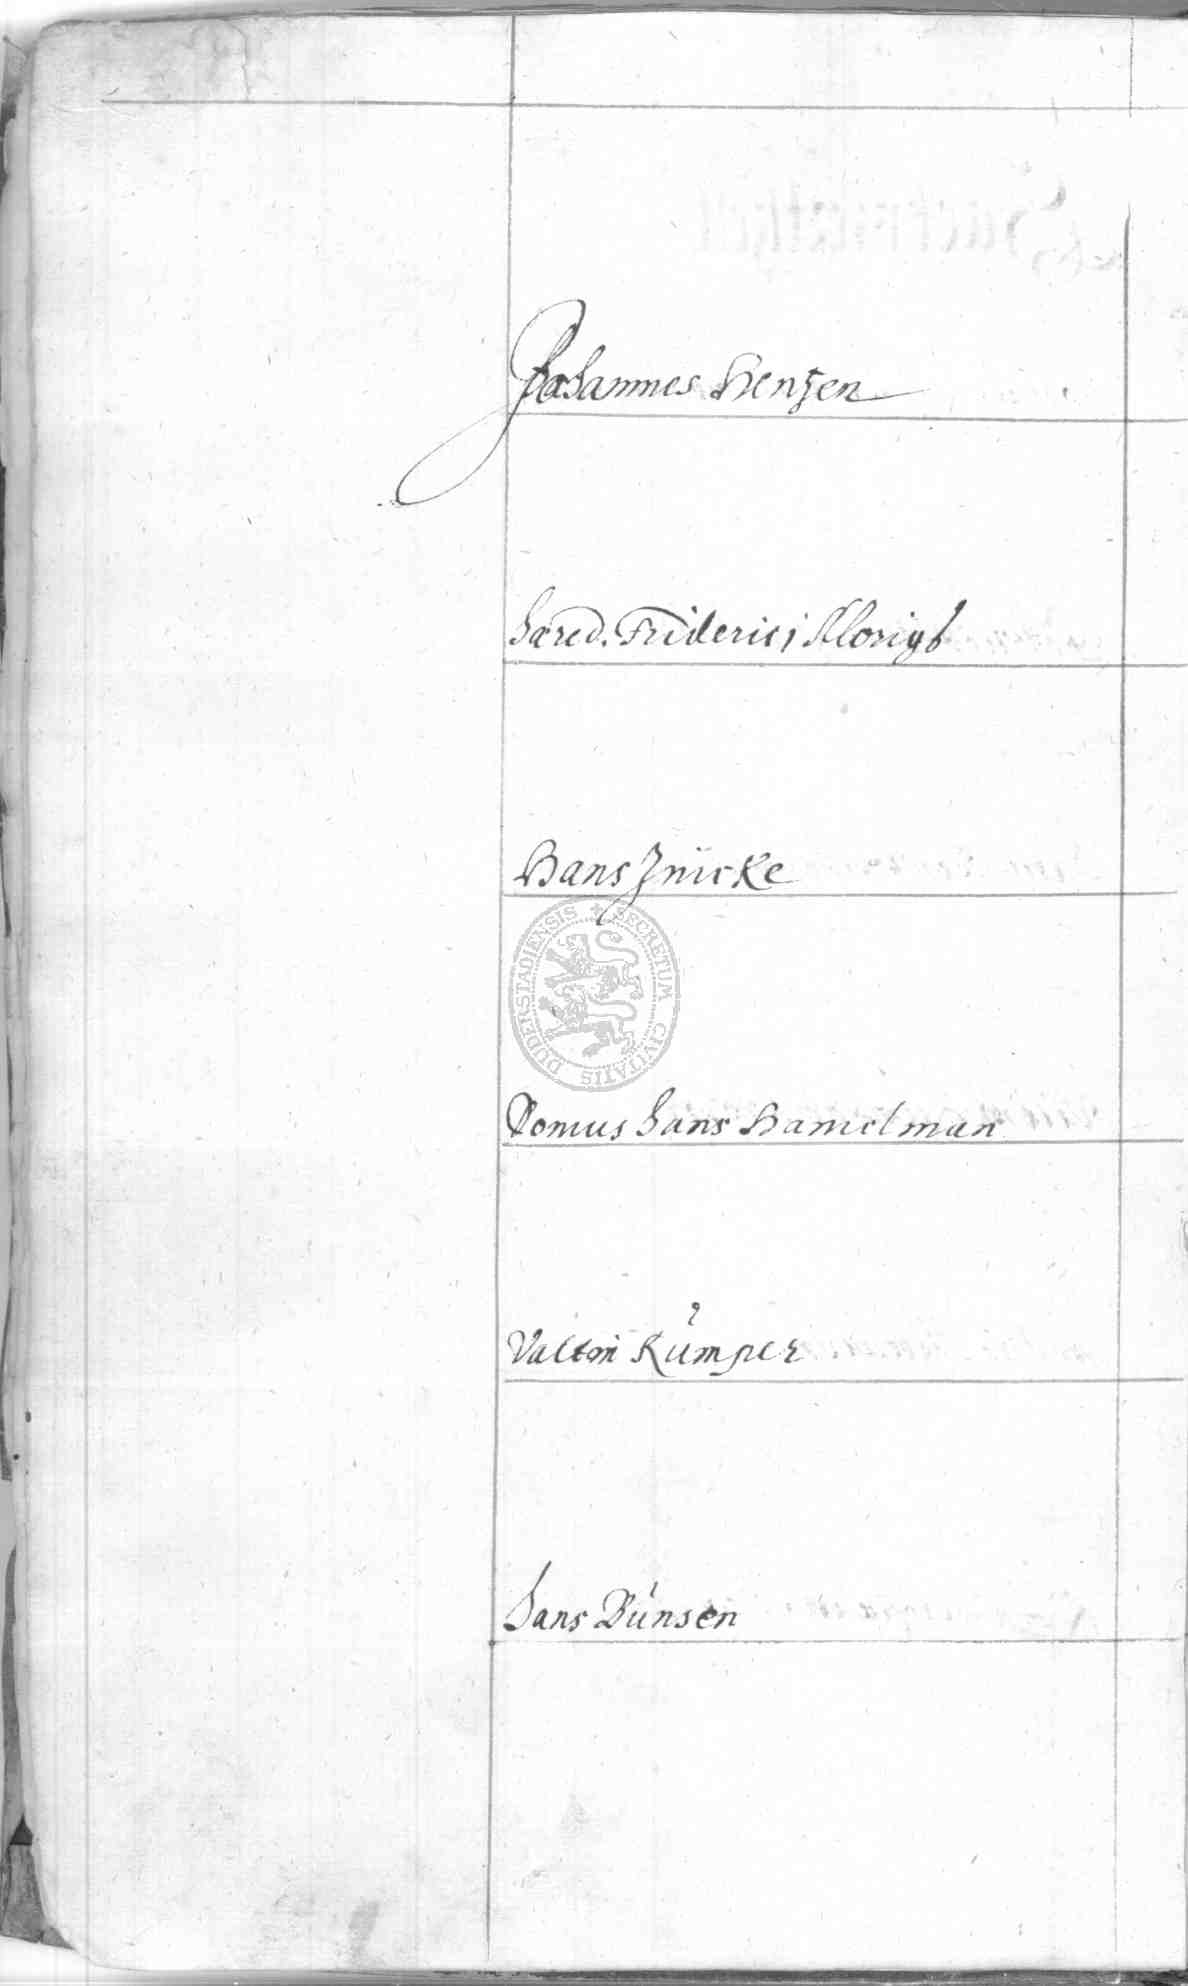 Johannes Hentzen
Hæred. Friderici Klorigß
Hans Jnicke
SECRETUM CIVITATIS DUDERSTADIENSIS
Domus Hans Hamelman
Valtin Kümper
Hans Bünsen